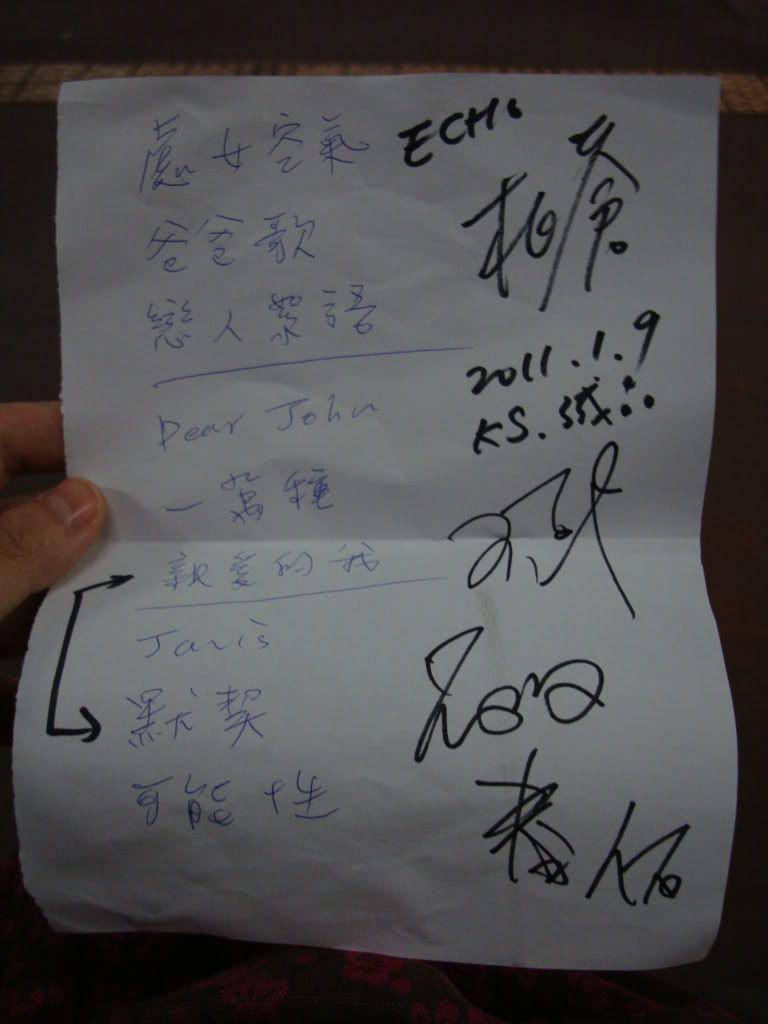 處女空氣
爸爸歌
戀人絮語
Dear John
一萬種
親愛的我
Janis
默契
可能性
ECHO
柏蒼
2011.1.9
KS.